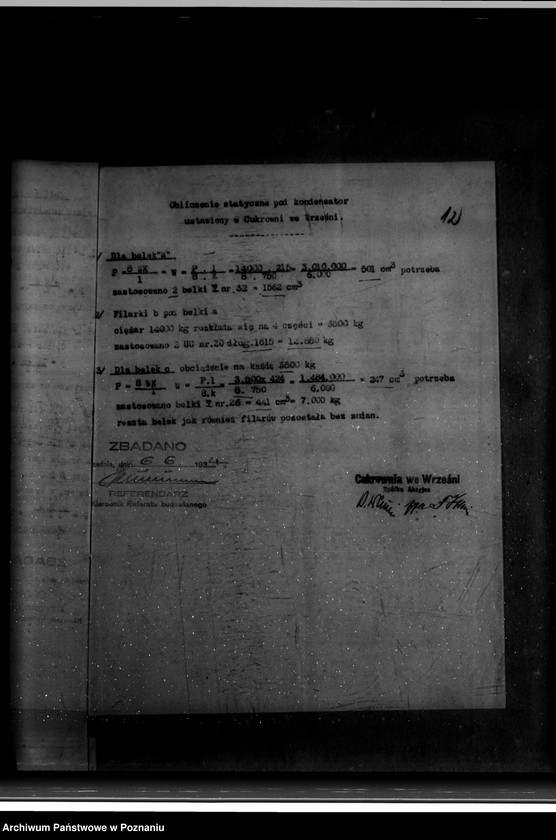 12
Obliczenie statyczne pod kondensator
ustawiony w Cukrowni we Wrześni.
1/ Dla belek "a"
P = 8 WK / l = W = P . l / 8 . k = 14000 . 215 / 8 . 750 = 3.010.000 / 6.000 = 501 cm3 potrzeba
zastosowano 2 belki I nr. 32 = 1562 cm3
2/ Filarki b pod belki a
ciężar 14000 kg rozkłada się na 4 części = 3500 kg
zastosowano 2 UU nr.20 dług.1615 = 12.680 kg
3/ Dla belek c obciążenie na każdą 3500 kg
P = 8 Wk / l W = P.l / 8.k = 3.500x 424 / 8. 750 = 1.484.000 / 6.000 = 247 cm3 potrzeba
zastosowano belki I nr.26 = 441 cm3 = 7.000 kg
reszta belek jak również filarów pozostała bez zmian.
ZBADANO
dnia 6 6 193
REFERENDARZ
Kierownik Referatu budowlanego
Cukrownia we Wrześni
Spółka Akcyjna
ppa
Archiwum Państwowe w Poznaniu